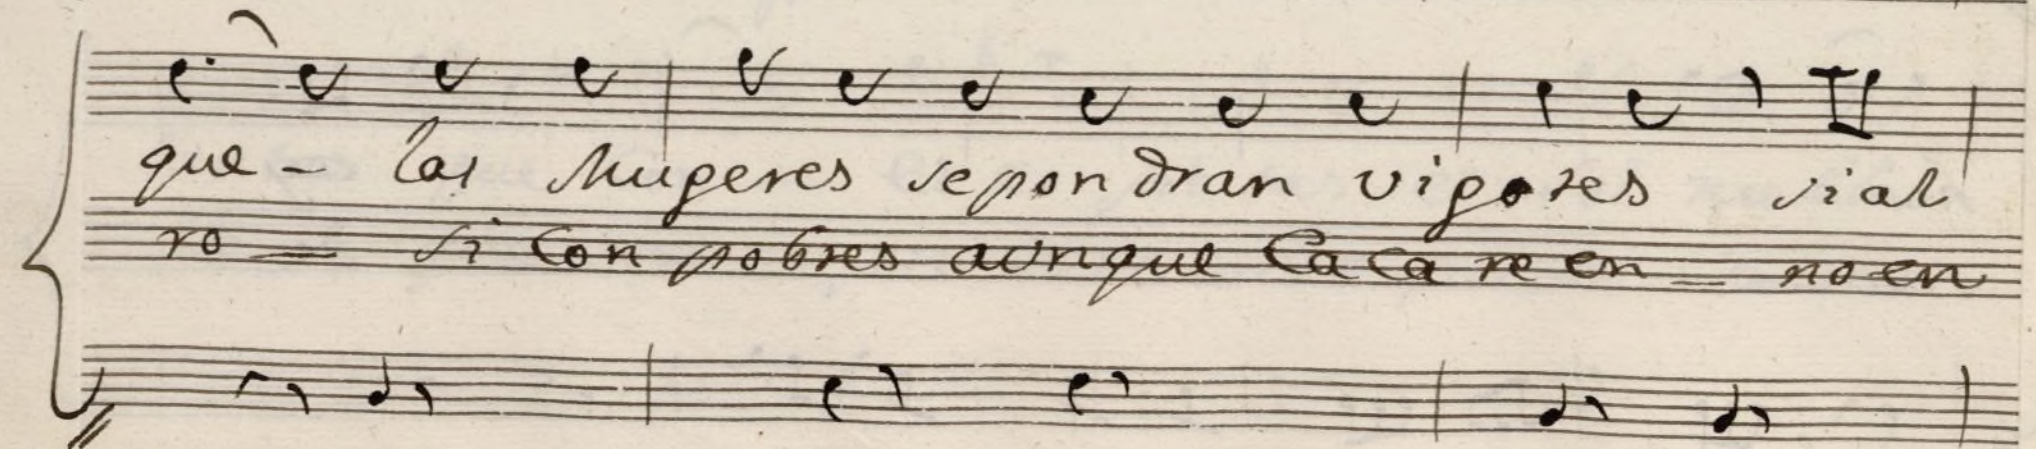 que - las Mugeres sepondran vigores sial
ro - si Con pobres aunque Cacareen - no en